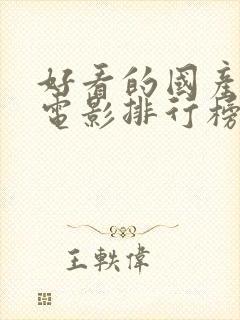 好看的國産
電影排行榜
王軼偉